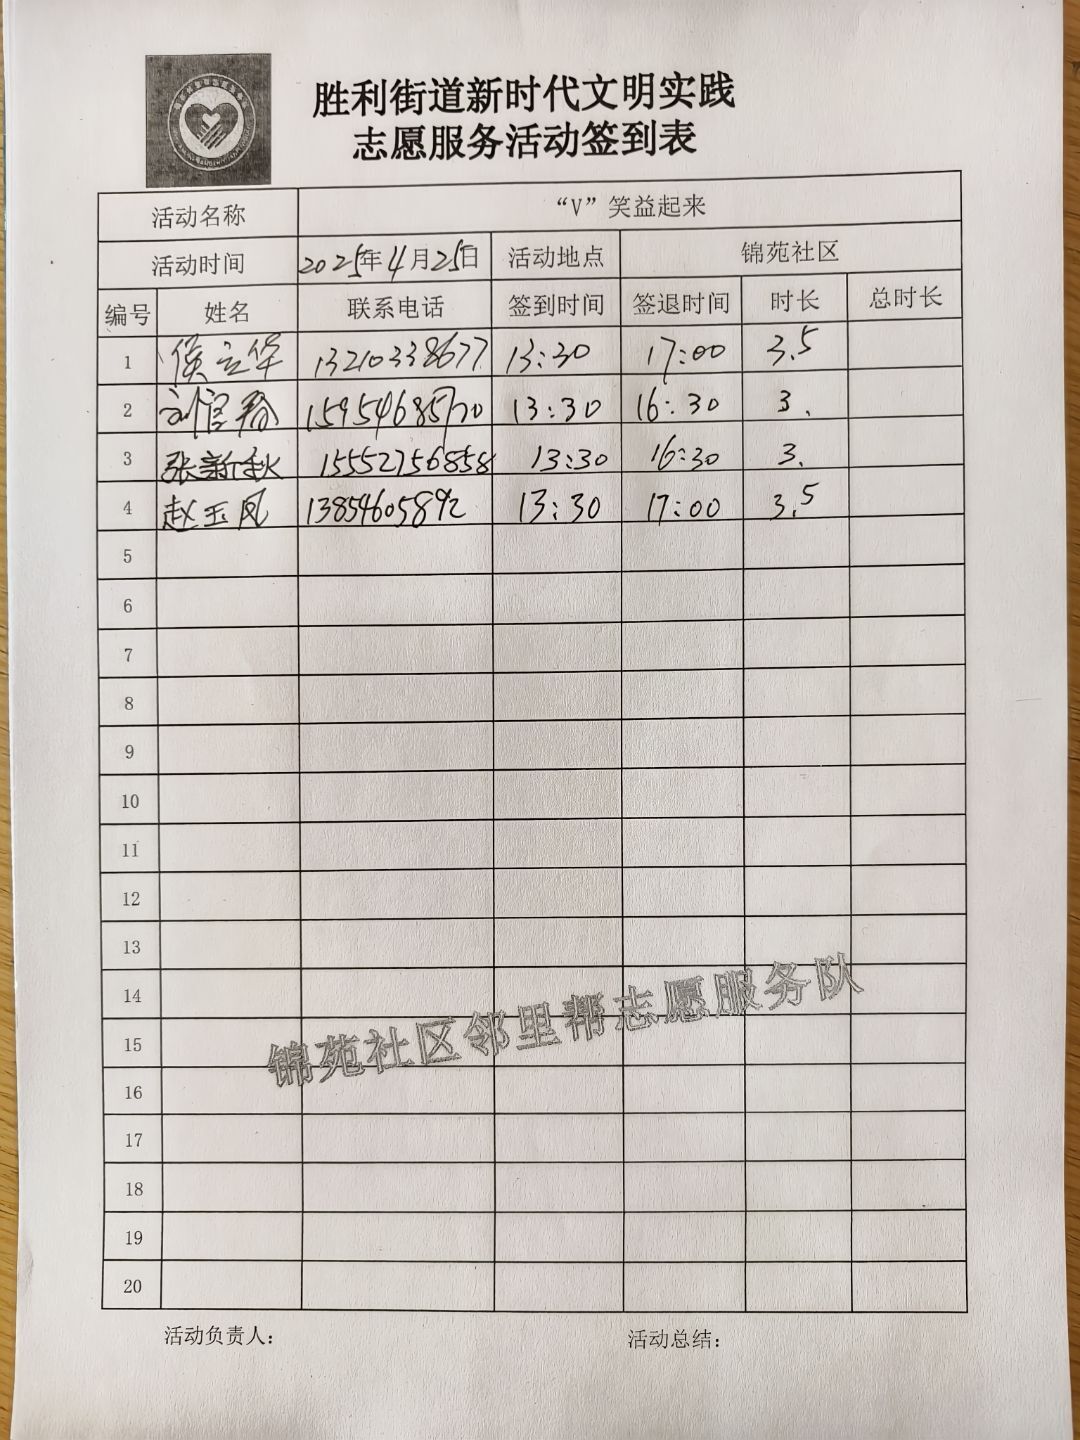 胜利街道新时代文明实践
志愿服务活动签到表
活动名称 “V”笑益起来
活动时间 2025年4月25日 活动地点 锦苑社区
编号 姓名 联系电话 签到时间 签退时间 时长 总时长
1 侯立华 13210338677 13:30 17:00 3.5
2 刘 15954685720 13:30 16:30 3.
3 张新秋 15552756858 13:30 16:30 3.
4 赵玉凤 13854605892 13:30 17:00 3.5
5
6
7
8
9
10
11
12
13
14
15
16
17
18
19
20
锦苑社区邻里帮志愿服务队
活动负责人： 活动总结：